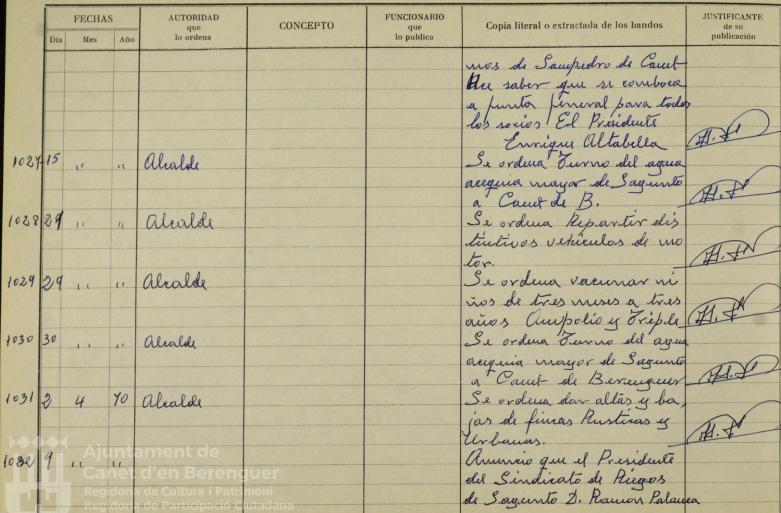 FECHAS AUTORIDAD que lo ordena CONCEPTO FUNCIONARIO que lo publica Copia literal o extractada de los bandos JUSTIFICANTE de su publicación
Día Mes Año
mos de Sampedro de Canet
Hce saber que se comboca
a junta general para todos
los socios El Presidente
Enrique Altabella
1027 15 " " Alcalde Se ordena Turno del agua
acequia mayor de Sagunto
a Canet de B.
1028 29 " " Alcalde Se ordena Repartir dis
tintivos vehiculos de mo
tor.
1029 29 " " Alcalde Se ordena vacunar ni
ños de tres meses a tres
años Ampolio y Triple
1030 30 " " Alcalde Se ordena Turno del agua
acequia mayor de Sagunto
a Canet de Berenguer
1031 2 4 70 Alcalde Se ordena dar altas y ba,
jas de fincas Rusticas y
Urbanas.
1032 9 " " Anuncio que el Presidente
del Sindicato de Riegos
de Sagunto D. Ramon Palanca
Ajuntament de
Canet d'en Berenguer
Regidoria de Cultura i Patrimoni
Regidoria de Participació Ciutadana